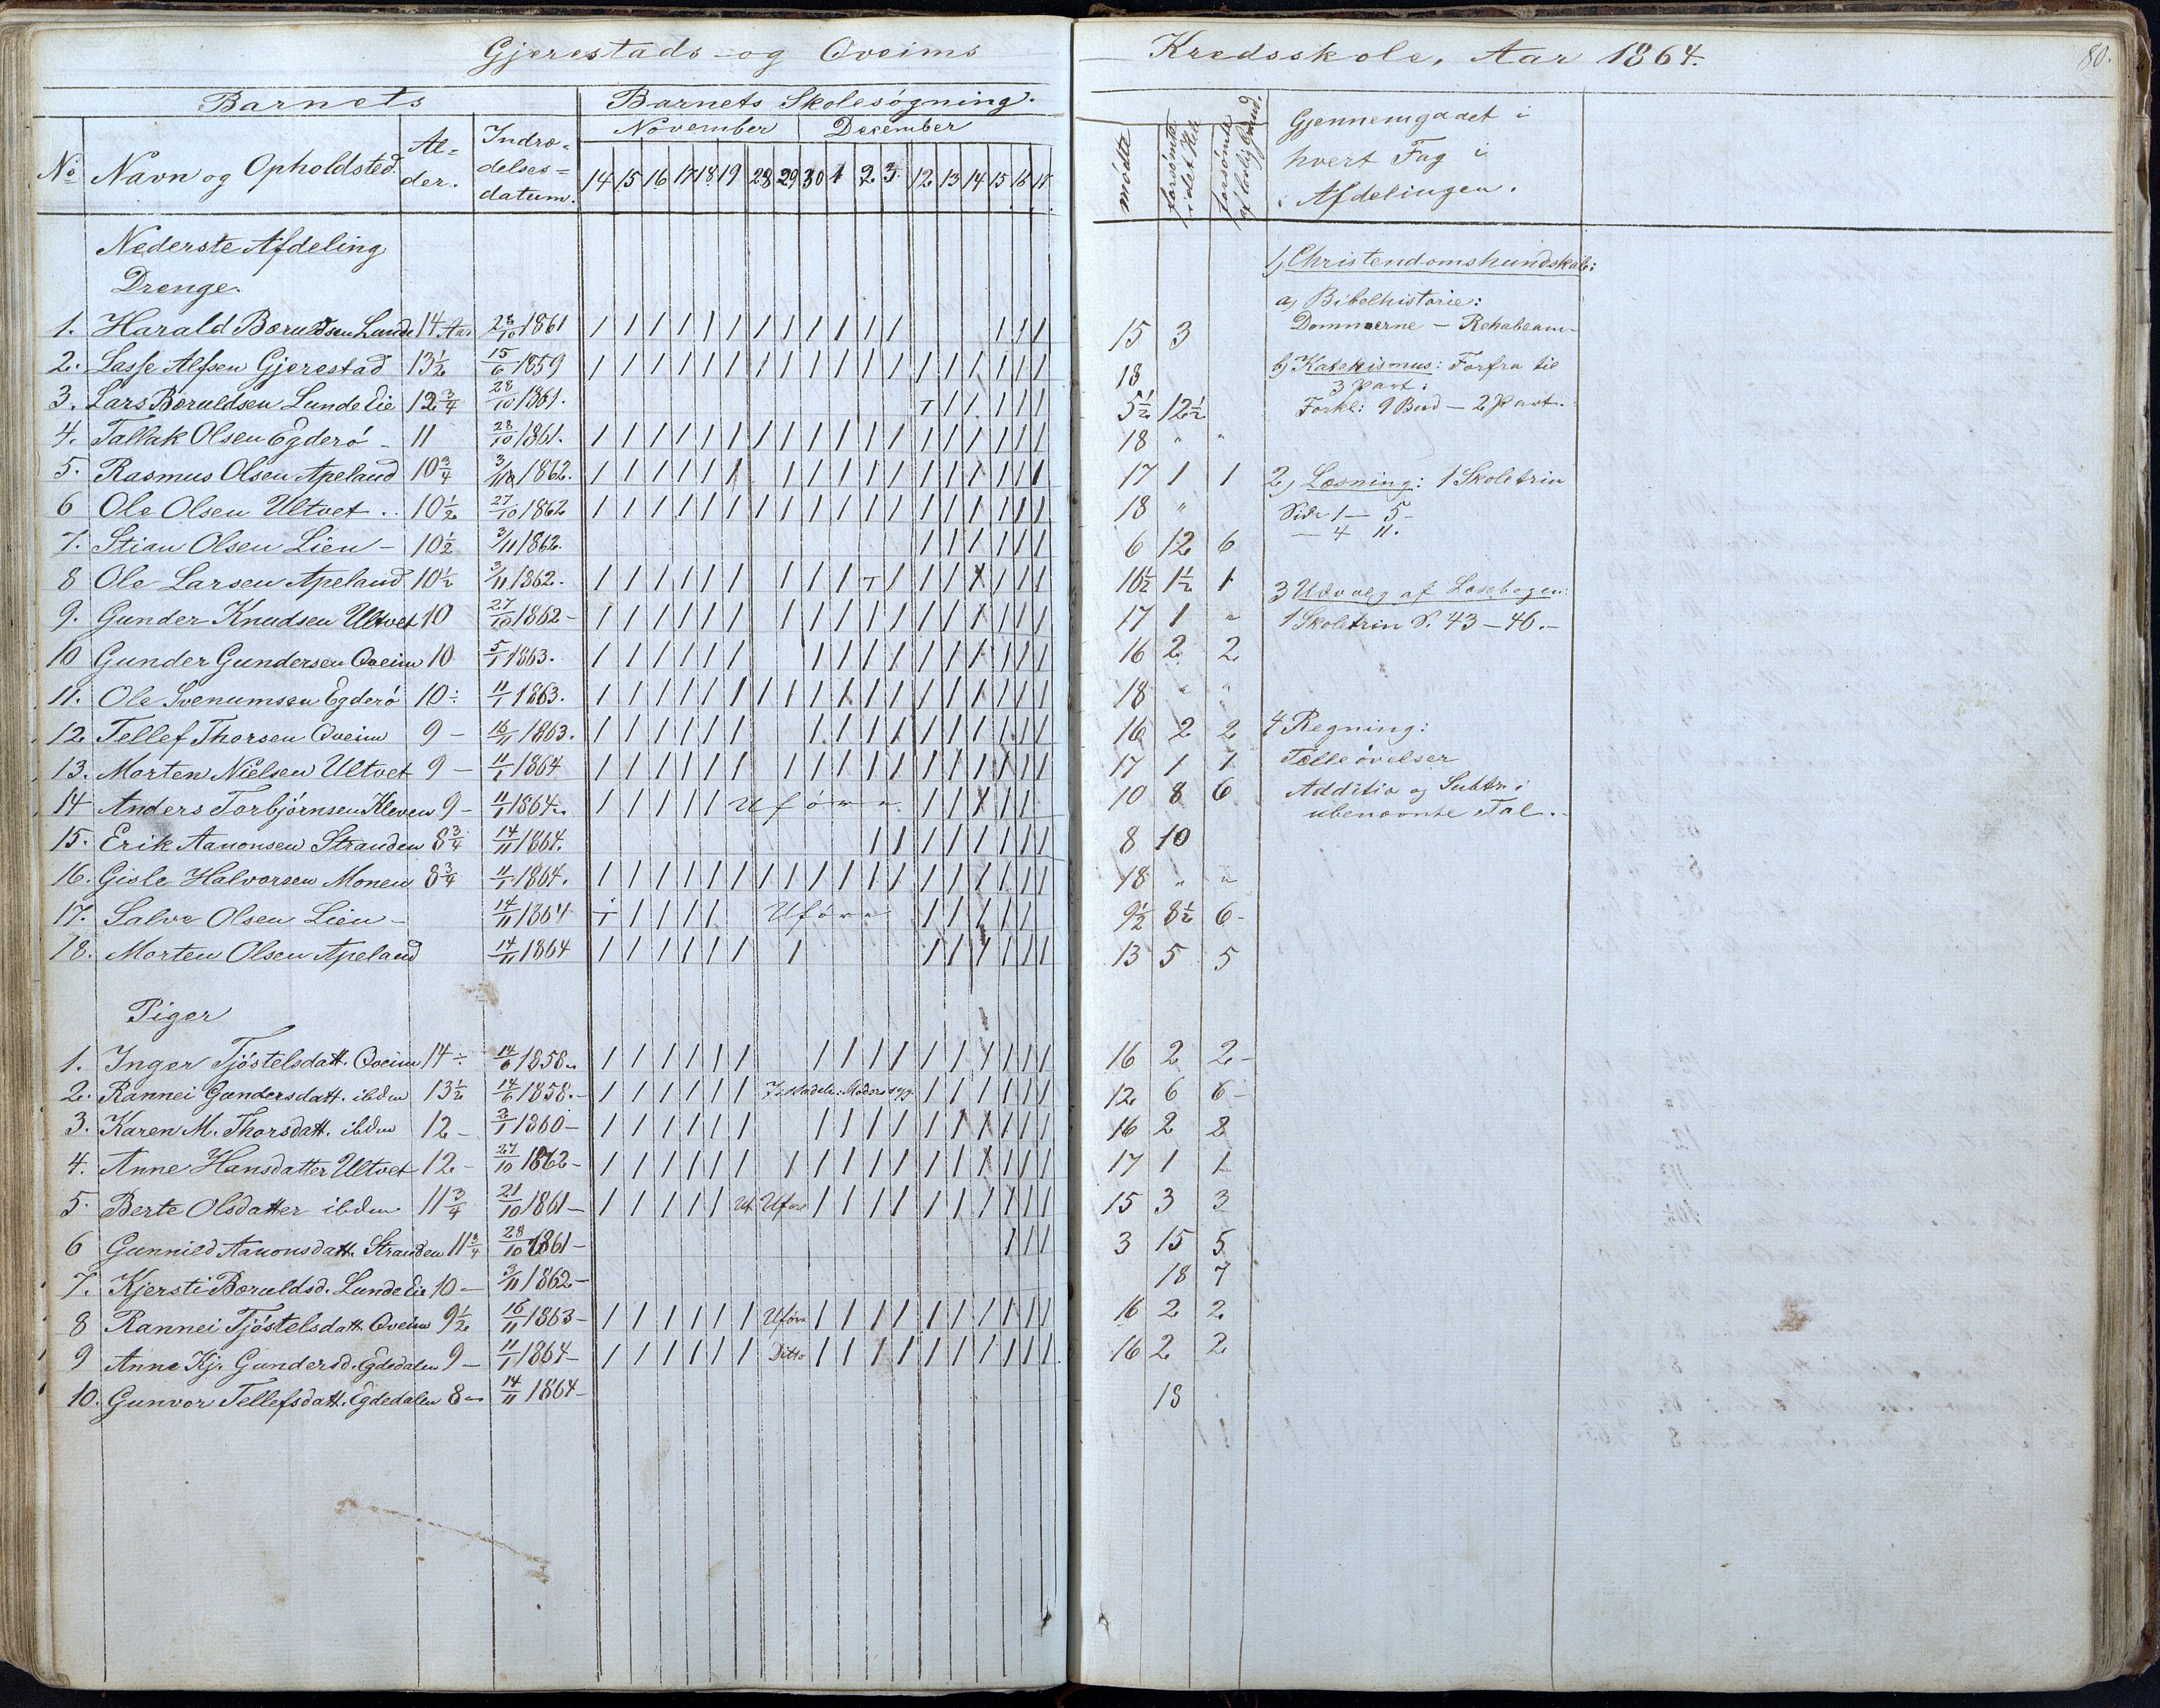 Gjerestads- og Qveims Kredsskole, Aar 1864.
80.
Barnets
Barnets Skolesøgning.
November December
No Navn og Opholdsted. Al=der. Indtræ=delses=datum.
14 15 16 17 18 19 28 29 30 1 2 3 12 13 14 15 16 17
mödte forsömte i det Hele forsömte af lovlig Grund.
Gjennemgaaet i
hvert Fag i
Afdelingen.
Nederste Afdeling
Drenge
1. Harald Boruldsen Lunde 14 Aar 28/10 1861 / / / / / / / / / / / / / / / 15 3
2. Lasse Alfsen Gjerestad 13½ 15/6 1859 / / / / / / / / / / / / / / / / / / 18
3. Lars Boruldsen Lunde Eie 12¾ 28/10 1861. T / / / / / 5½ 12½
4. Tallak Olsen Egderö - 11 28/10 1861. / / / / / / / / / / / / / / / / / / 18 " "
5. Rasmus Olsen Apeland 10¾ 3/11 1862. / / / / / / / / / / / / / / / / / 17 1 1
6 Ole Olsen Ultvet .. 10½ 27/10 1862 / / / / / / / / / / / / / / / / / / 18 "
7. Stian Olsen Lien - 10½ 3/11 1862. / / / / / / 6 12 6
8 Ole Larsen Apeland 10½ 3/11 1862. / / / / / / / / / T / / / / / / / 16½ 1½ 1
9. Gunder Knudsen Ultvet 10 27/10 1862 - / / / / / / / / / / / / / / / / / 17 1 "
10 Gunder Gundersen Qveim 10 5/1 1863. / / / / / / / / / / / / / / / / 16 2 2
11. Ole Svenumsen Egderö 10 ÷ 11/1 1863. / / / / / / / / / / / / / / / / / / 18 " "
12. Tellef Thorsen Qveim 9 - 16/11 1863. / / / / / / / / / / / / / / / / 16 2 2
13. Morten Nielsen Ultvet 9 - 11/1 1864 / / / / / / / / / / / / / / / / / 17 1 1
14 Anders Torbjörnsen Kleven 9 - 11/1 1864. / / / / / Uföre / / / / / 10 8 6
15. Erik Aanonsen Stranden 8¾ 14/11 1864. / / / / / / / / 8 10
16. Gisle Halvorsen Monen 8¾ 11/1 1864. / / / / / / / / / / / / / / / / / / 18 " "
17. Salve Olsen Lien - 14/11 1864 T / / / / Uföre / / / / / 9½ 8½ 6 -
18. Morten Olsen Apeland 14/11 1864 / / / / / / / / / / / / / 13 5 5
Piger
1. Inger Tjöstelsdatt. Qveim 14 ÷ 14/6 1858. / / / / / / / / / / / / / / / / 16 2 2 -
2. Rannei Gundersdatt. ibdm 13½ 14/6 1858. - / / / / / / Moder syg. / / / / / / 12 6 6 -
3. Karen M. Thorsdatt. ibdm 12 - 1860 - / / / / / / / / / / / / / / / / 16 2 2
4. Anne Hansdatter Ultvet 12 - 27/10 1862 - / / / / / / / / / / / / / / / / / 17 1 1
5. Berte Olsdatter ibdm. 11¾ 21/10 1861 - / / / / / Uf. Uföre / / / / / / / / / / 15 3 3
6 Gunnild Aanonsdatt. Stranden 11¾ 28/10 1861 - / / / 3 15 5
7. Kjersti Boruldsd. Lunde Eie 10 - 3/11 1862 - 18 7
8 Rannei Tjöstelsdatt. Qveim 9½ 16/11 1863 - / / / / / / Uföre / / / / / / / / / / 16 2 2
9 Anne Kj. Gundersd. Egdedalen 9 - 11/1 1864 - / / / / / / Ditto / / / / / / / / / / 16 2 2
10. Gunvor Tellefsdatt. Egdedalen 8 - 14/11 1864 - 18
1) Christendomskundskab:
a) Bibelhistorie:
Dommerne - Rehabeam -
b) Katekismus: Forfra til
3 Part:
Forkl: 9 Bud - 2 Part.
2) Læsning: 1 Skoletrin
Side 1 - 5 -
- 4 11.
3 Udvalg af Læsebogen:
1 Skoletrin S. 43 - 46. -
4 Regning:
Tælleövelser
Additio og Subtr. i
ubenævnte Tal. -